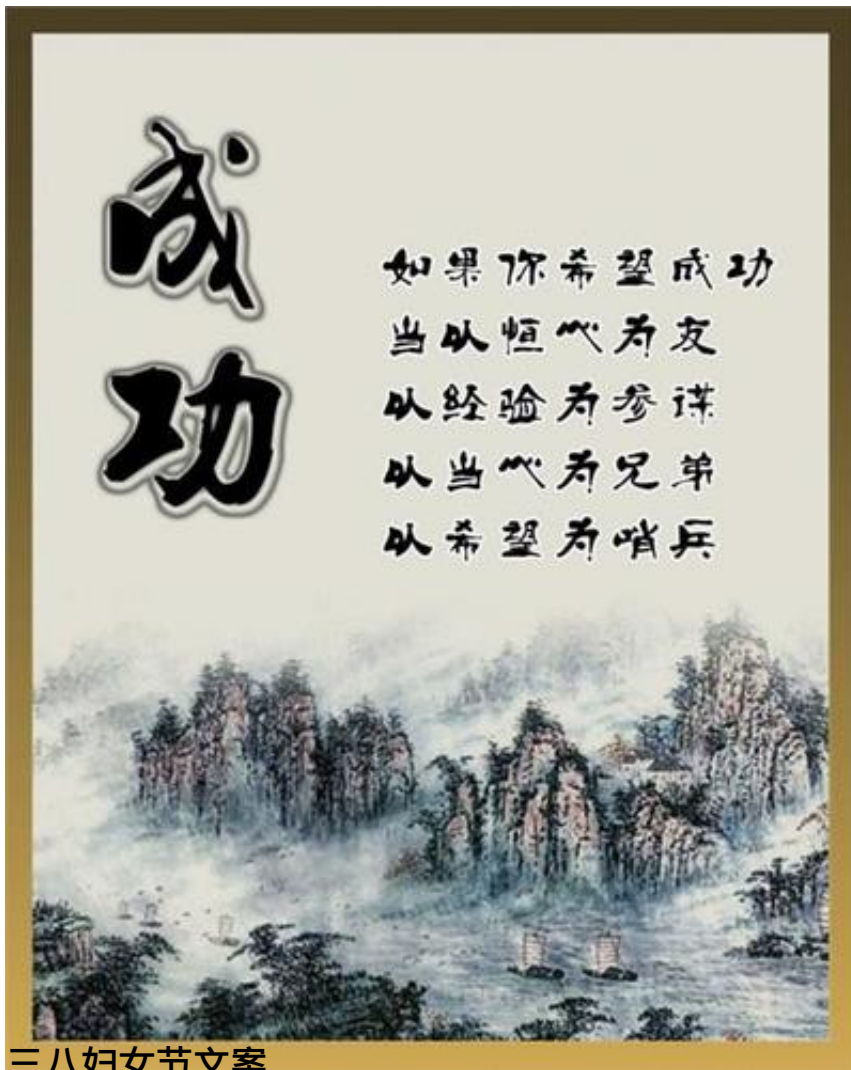 成功
如果你希望成功
当以恒心为友
以经验为参谋
以当心为兄弟
以希望为哨兵
三八妇女节文案